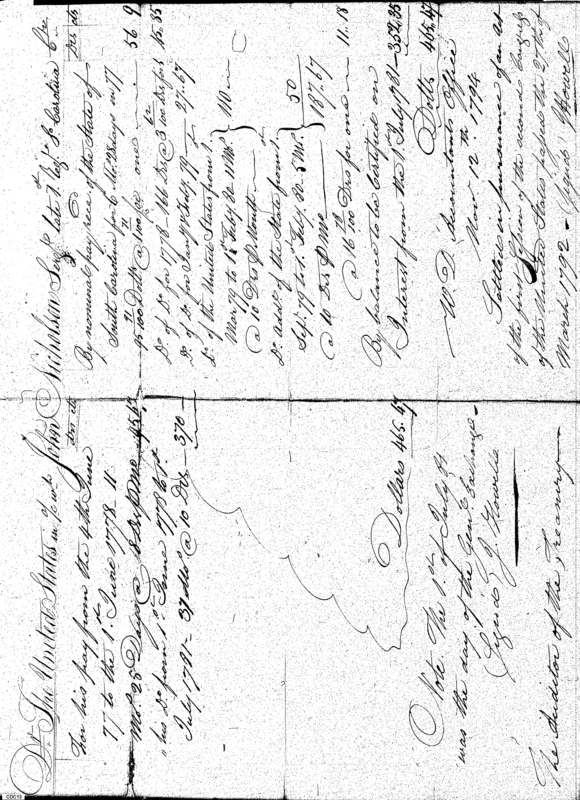 Dr. The United States in acct. with John Nicholson Serjt. late 1st Regt. So. Carolina Cr.
Drs cts
For his pay from the 4th June
77 to the 1st June 1778 11
Mos. 28 Days @ 8 Drs 45.47
" his Do. from 1st June 1778 to 1st
July 1781 - 37 Mos @ 10 Drs - 370
Dollars 465.47
Note. The 1st of July 81
was the day of the Genl. Exchange -
Signed J. Howell
The Auditor of the Treasury
Drs cts
By nominal pay recd. of the State of
South Carolina for 6 Mo. 28 Days in 77
@ 100 Dolls one 56 9
Do. of Do. for 1778 - 166 Drs @ 100 Drs for 15.85
Do. of Do. for Jany & Feby 79 27.67
Do. of the United States from
Mar 79 to Feby 80 11 Mos
@ 10 Drs p Month 110
Do. of the State from
Sept. 79 to 1st Feby 80. 5 Mos
@ 10 Drs p Mo 50
187.67
@ 16 Drs for one 11.18
By balance to be Certified on
Interest from the 1st July 1781 - 352.35
Dolls 465.47
W. D. Accountants Office
Nov. 12th 1794
Settled in pursuance of an Act
of the first Session of the second Congress
of the United States passed the 27th of
March 1792 - Signed J Howell
CDC13